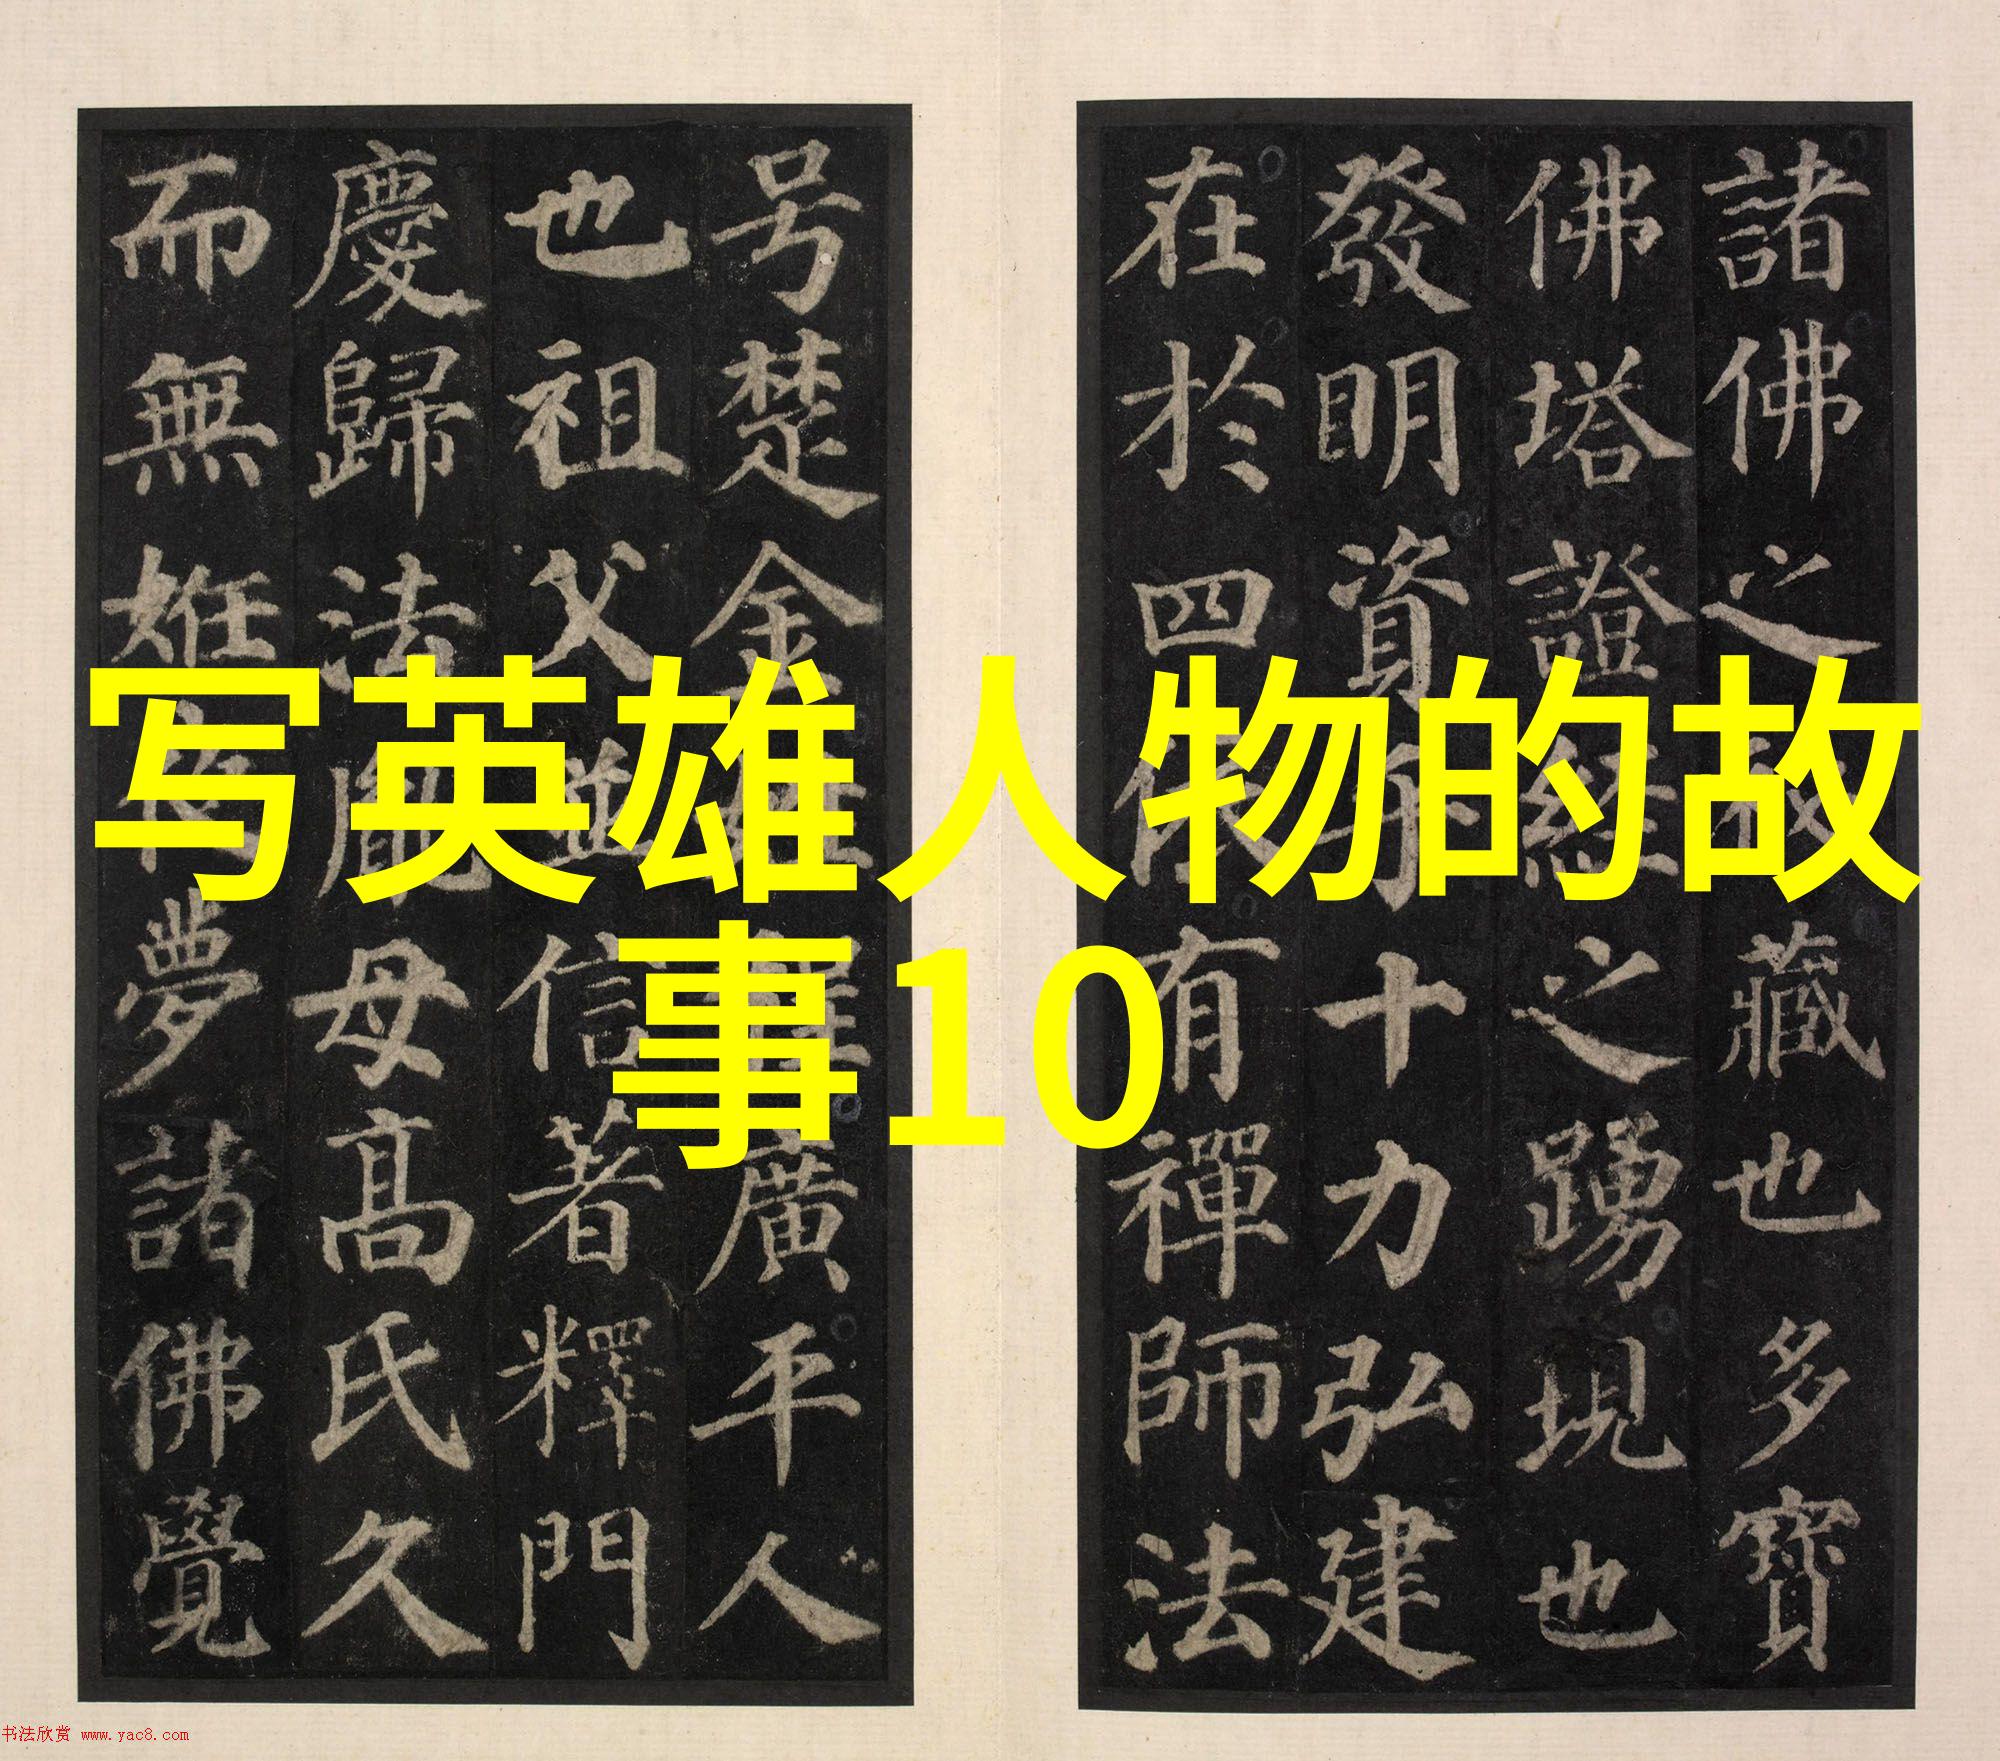 写英雄人物的故
事10
諸佛之藏也多寶
佛塔證經之踴現也
發明資乎十力弘建
在於四依有禪師法
号楚金廣平人
也祖父並信著釋門
慶歸法胤母高氏久
而無姙夜夢諸佛覺
书法欣赏 www.yac8.com